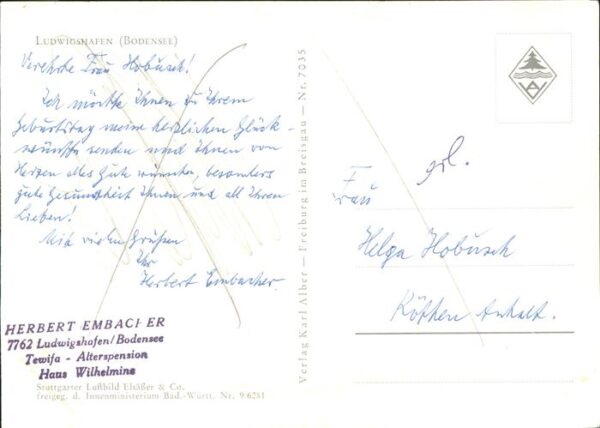 LUDWIGSHAFEN (BODENSEE)
Verehrte Frau Hobusch!
Ich möchte Ihnen zu Ihrem
Geburtstag meine herzlichen Glück-
wünsche senden und Ihnen von
Herzen alles Gute wünschen, besonders
gute Gesundheit Ihnen und all Ihren
Lieben!
Mit vielen Grüßen
Ihr
Herbert Embacher.
HERBERT EMBACHER
7762 Ludwigshafen/Bodensee
Tewifa - Alterspension
Haus Wilhelmine
Stuttgarter Luftbild Elsäßer & Co.
freigeg. d. Innenministerium Bad.-Württ. Nr. 9/6281
Verlag Karl Alber — Freiburg im Breisgau — Nr. 7035
erl.
Frau
Helga Hobusch
Köthen Anhalt.